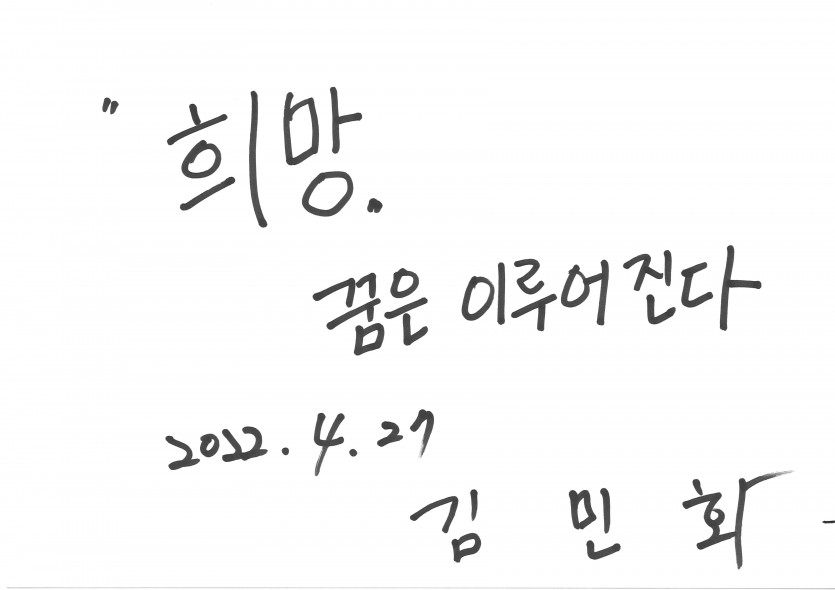 "희망."
꿈은 이루어진다
2022. 4. 27
김 민 화